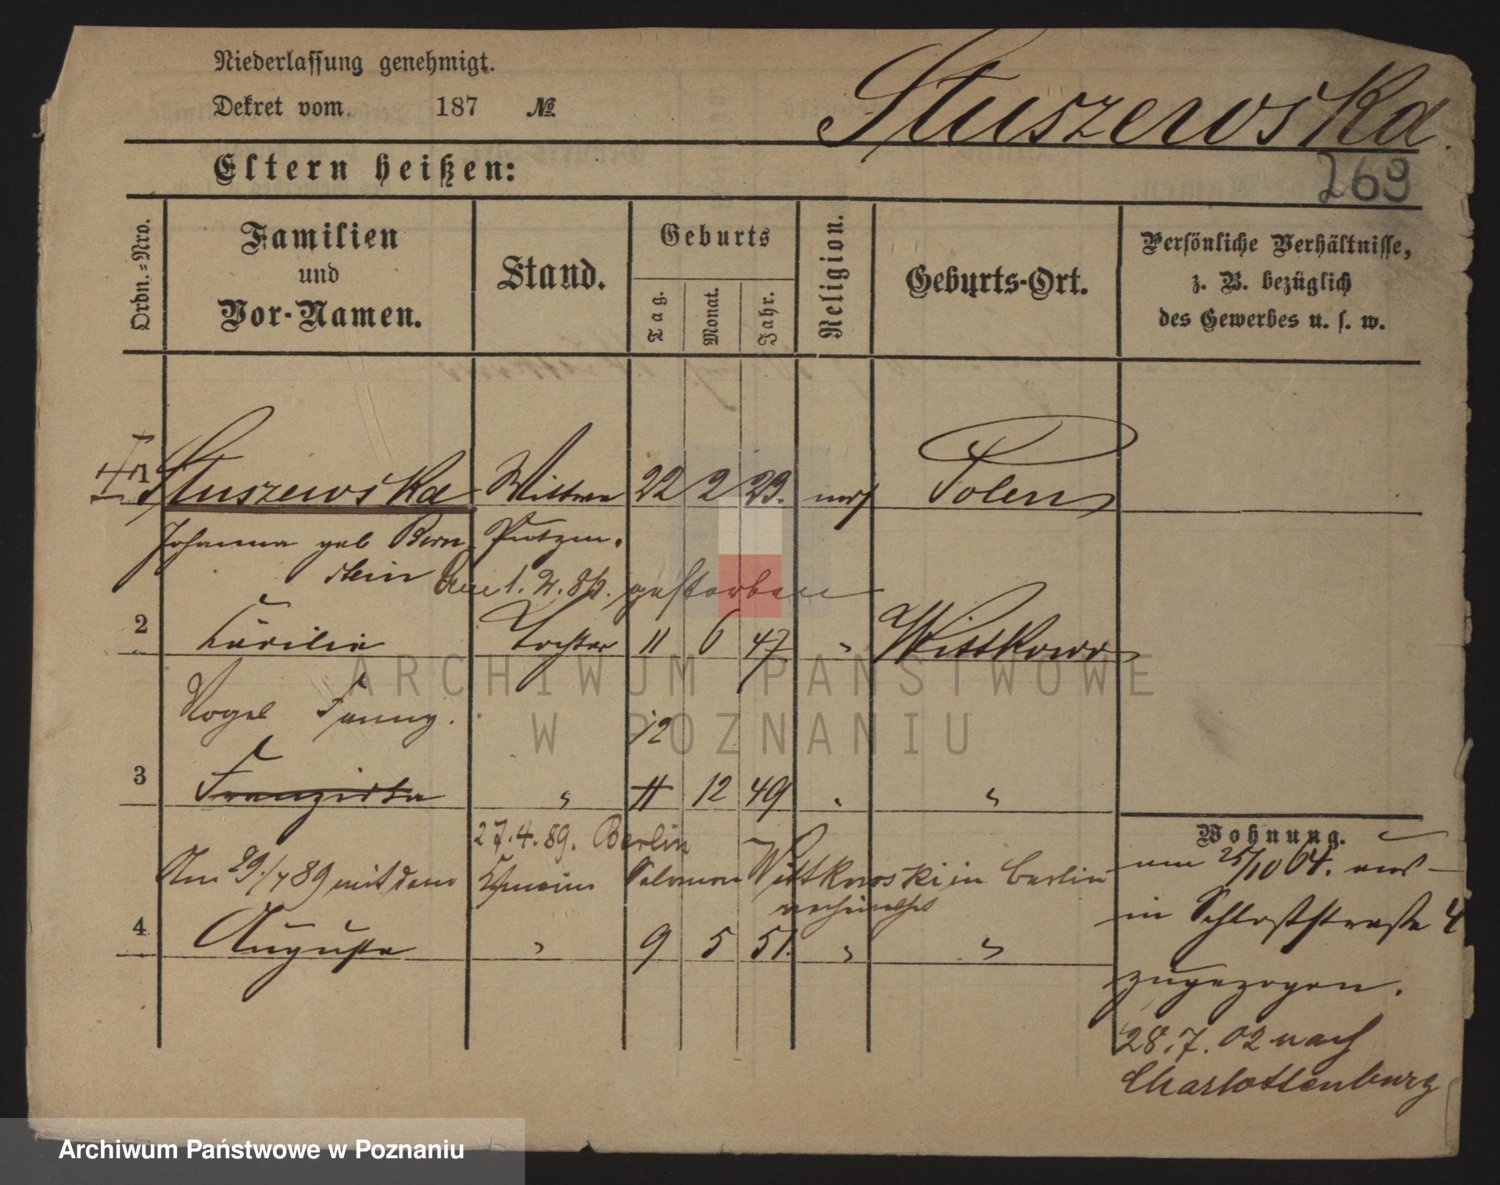 Niederlassung genehmigt.
Dekret vom 187 №
Stuszewska.
269
Eltern heißen:
Ordn.=Nro.
Familien und Vor-Namen.
Stand.
Geburts
Tag. Monat. Jahr.
Religion.
Geburts-Ort.
Persönliche Verhältnisse, z. B. bezüglich des Gewerbes u. s. w.
1 Stuszewska Wittwe 22 2 23. mos Polen
Johanna geb Bern Putzm.
stein Am 1. 2. gestorben
2 Cäcilie Tochter 11 6 47 " Wittkowo
ARCHIWUM PAŃSTWOWE
Vogel Fanny. 12
W POZNANIU
3 Franziska " 11 12 49 " "
27.4.89. Berlin
Wohnung.
Am 29./7 89 mit dem Salomon Wittkowski in Berlin
am 25/10 64. aus
in Schloßstraße 4
4 Auguste " 9 5 51. " "
zugezogen.
28.7.02 nach
Charlottenburg
Archiwum Państwowe w Poznaniu